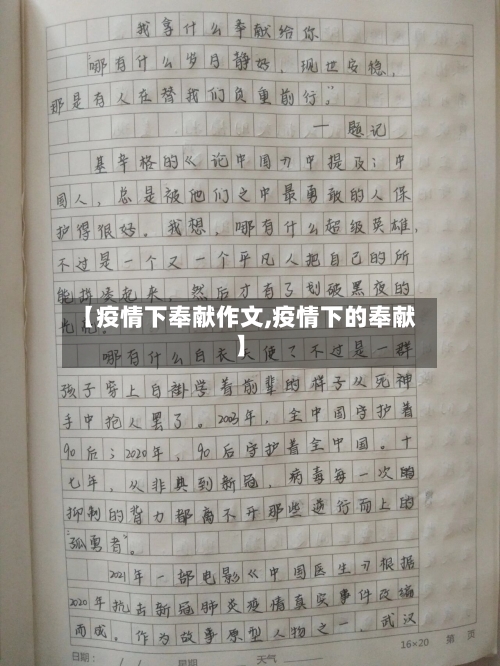 我拿什么奉献给你
"哪有什么岁月静好，现世安稳，
那是有人在替我们负重前行。"
— 题记
基辛格的《论中国》中提及：中
国人，总是被他们之中最勇敢的人保
护得很好。我想，哪有什么超级英雄，
不过是一个又一个平凡人把自己的所
能拼凑起来，然后才有了划破黑夜的
【疫情下奉献作文,疫情下的奉献
】
哪有什么白衣天使？不过是一群
孩子穿上白褂学着前辈的样子从死神
手中抢人罢了。2003年，全中国守护着
90后；2020年，90后守护着全中国。十
七年，从非典到新冠，病毒每一次的
抑制的背力都离不开那些逆行而上的
"孤勇者"。
2021年一部电影《中国医生》根据
2020年抗击新冠肺炎疫情真实事件改编
而成。作为故事原型人物之一，武汉
16×20 第 页
日期： / / 星期 天气